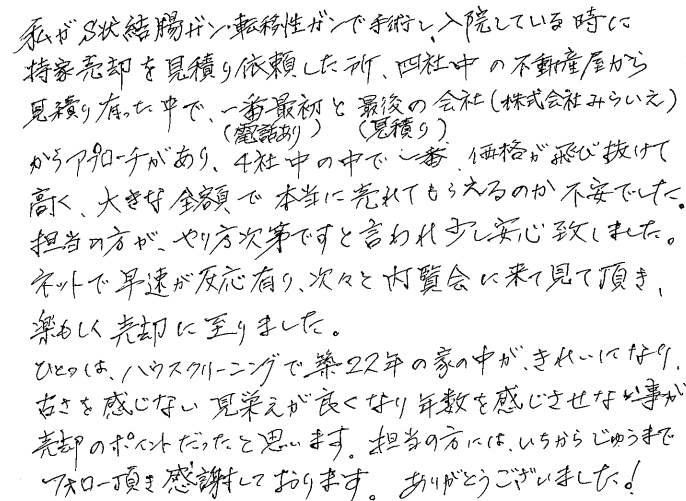 私がS状結腸ガン・転移性ガンで手術し、入院している時に
持家売却を見積り依頼した所、四社中の不動産屋から
見積り有った中で、一番最初と最後の会社(株式会社みらいえ)
(電話あり) (見積り)
からアプローチがあり、4社中の中で一番、価格が飛び抜けて
高く、大きな金額で本当に売れてもらえるのか不安でした。
担当の方が、やり方次第ですと言われ少し安心致しました。
ネットで早速が反応有り、次々と内覧会に来て見て頂き、
楽もしく売却に至りました。
ひとつは、ハウスクリーニングで築22年の家の中が、きれいになり、
古さを感じない見栄えが良くなり年数を感じさせない事が
売却のポイントだったと思います。担当の方には、いちからじゅうまで
フォロー頂き感謝しております。ありがとうございました!